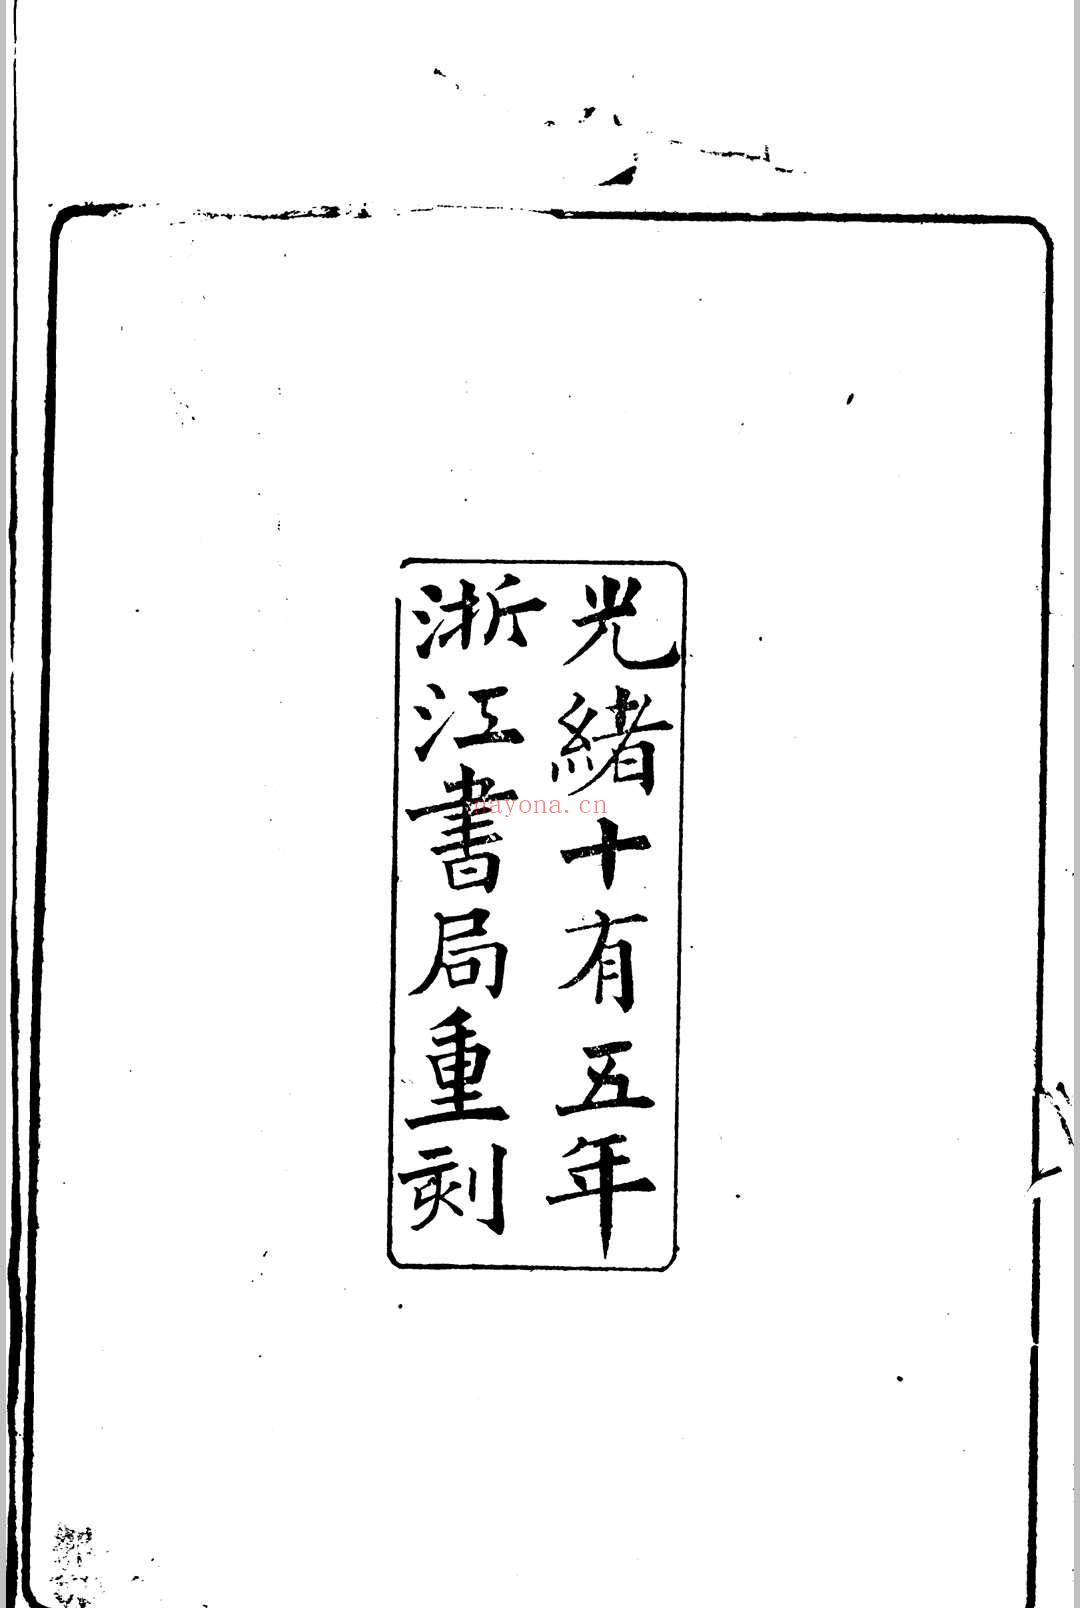 光緒十有五年
浙江書局重刻
nayona.cn